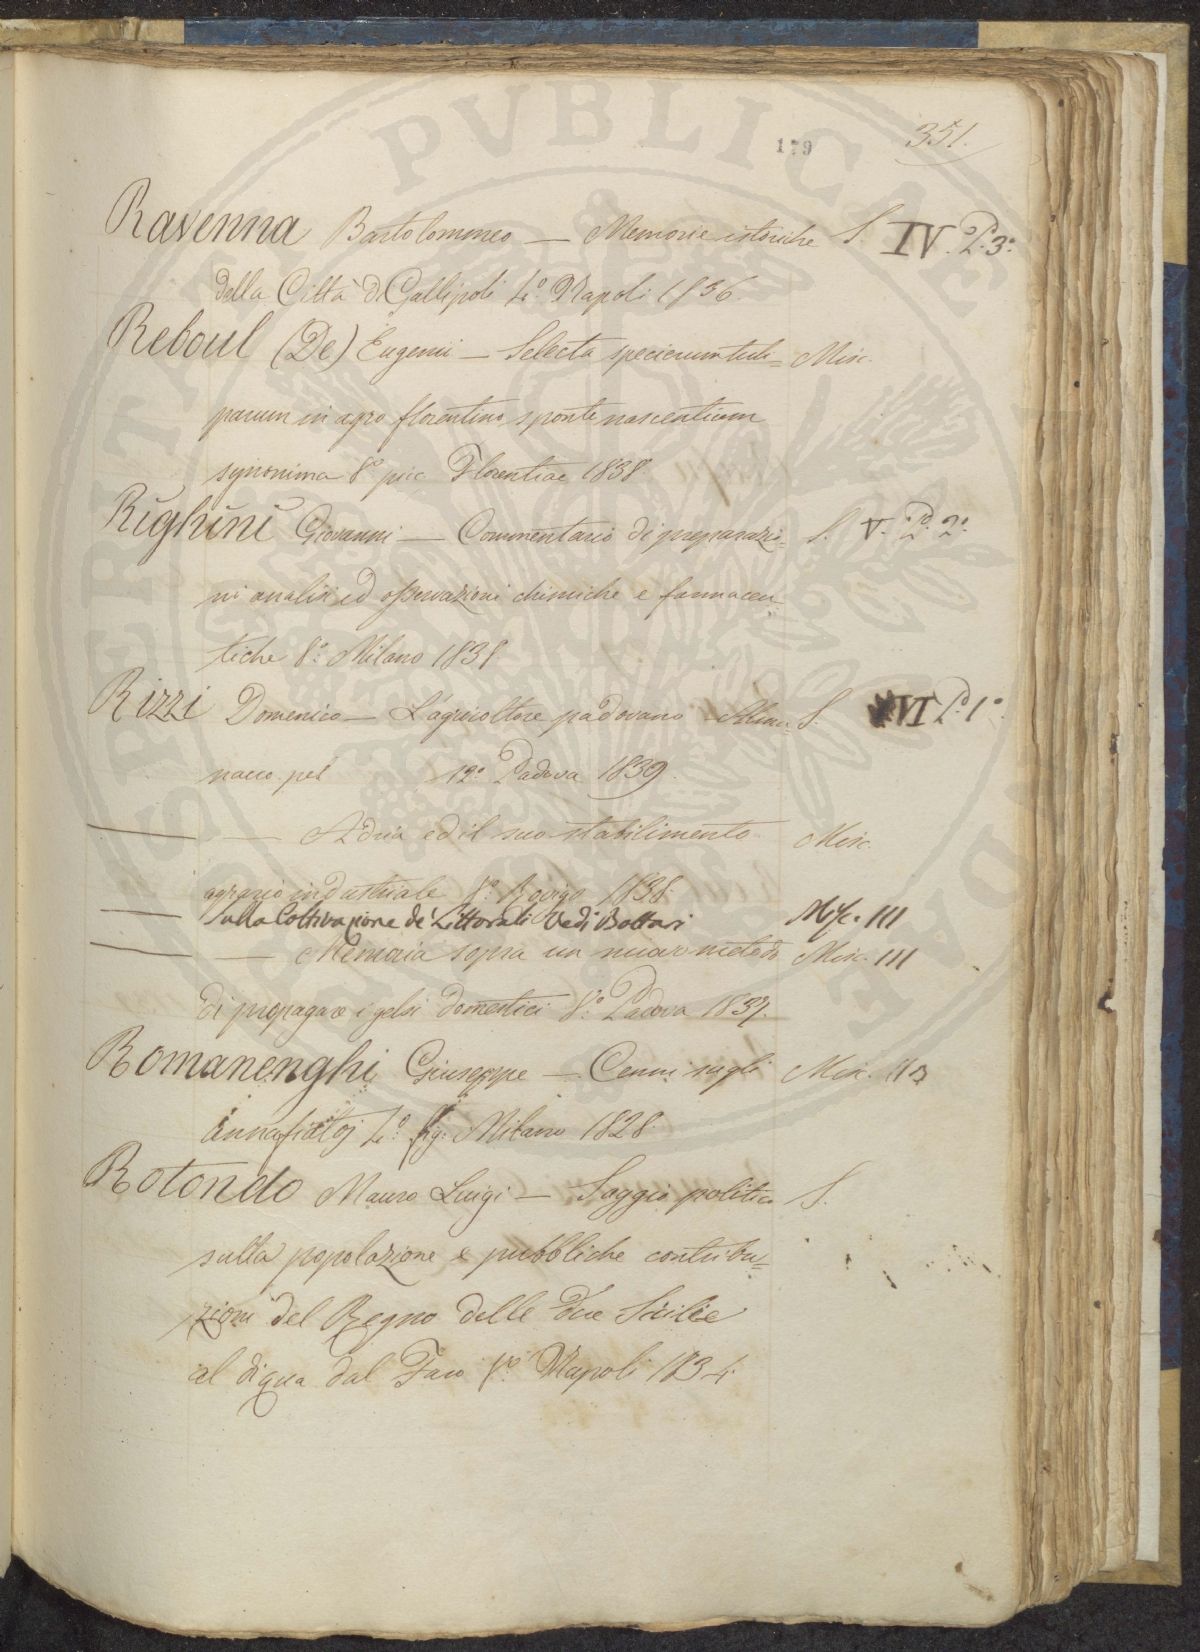 179
351.
Ravenna Bartolommeo — Memorie istoriche S. IV. P. 3°.
della Città di Gallipoli 4°. Napoli 1836.
Reboul (De) Eugenii — Selecta specierum tuli= Misc.
parum in agro florentino sponte nascentium
synonima 8° pic. Florentiae 1838
Righini Giovanni — Commentario di preparazio= S. V. P. 2°.
ni analisi ed osservazioni chimiche e farmaceu=
tiche 8°. Milano 1838
Rizzi Domenico — L'agricoltore padovano Alma= S. VI P. 1°.
nacco pel 12°. Padova 1839.
— — Adria ed il suo stabilimento Misc.
agrario industriale 8°. Rovigo 1838.
— Sulla Coltivazione de' Littorali Vedi Bottari Misc. III
— — Memoria sopra un nuovo metodo Misc. III
di propagare i gelsi domestici 8°. Padova 1837.
Romanenghi Giuseppe — Cenni sugli Misc.
Annafiatoj 4°. fig. Milano 1828
Rotondo Mauro Luigi — Saggio politico S.
sulla popolazione e pubbliche contribu=
zioni del Regno delle due Sicilie
al di qua dal Faro 8°. Napoli 1834.
PVBLICAE